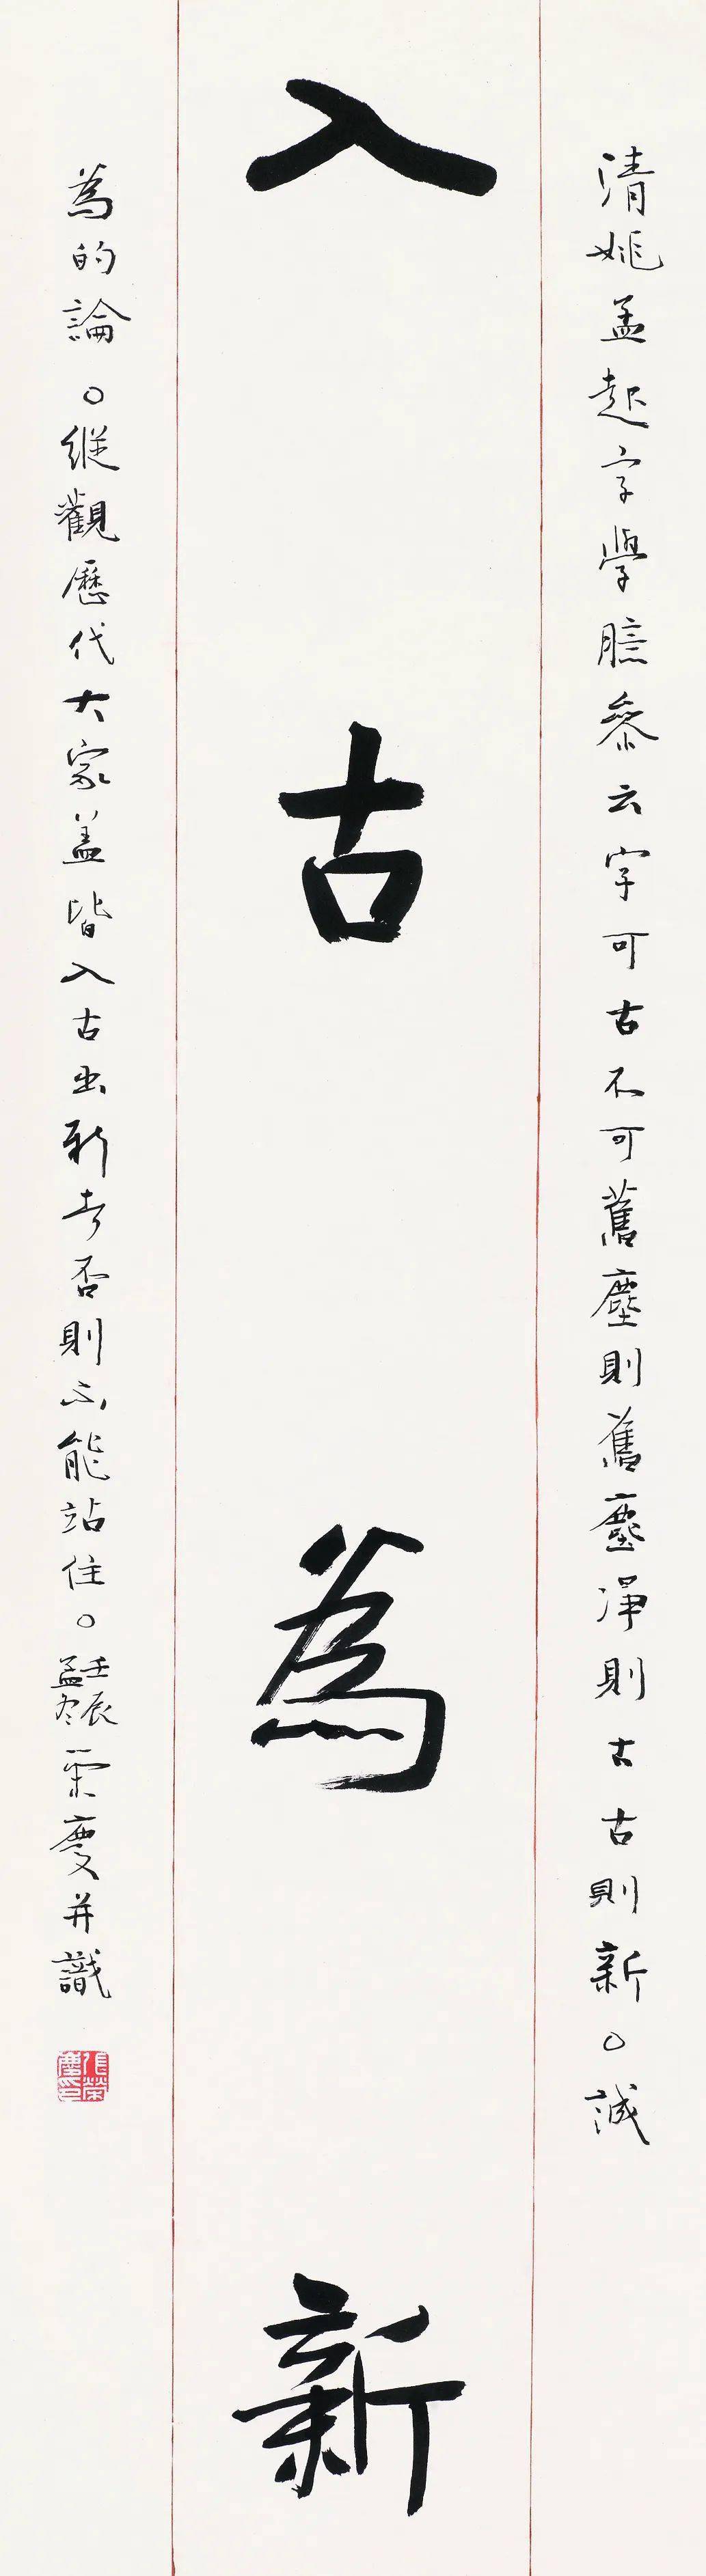 清姚孟起字學臆參云字可古不可舊塵則舊塵淨則古古則新○誠
入古為新
為的論○縱觀歷代大家蓋皆入古出新者否則不能站住○壬辰孟冬榮慶并識
張榮慶印